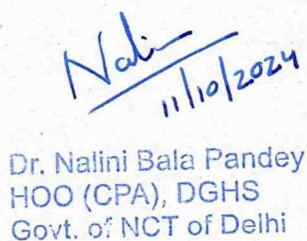 Nalini
11/10/2024
Dr. Nalini Bala Pandey
HOO (CPA), DGHS
Govt. of NCT of Delhi